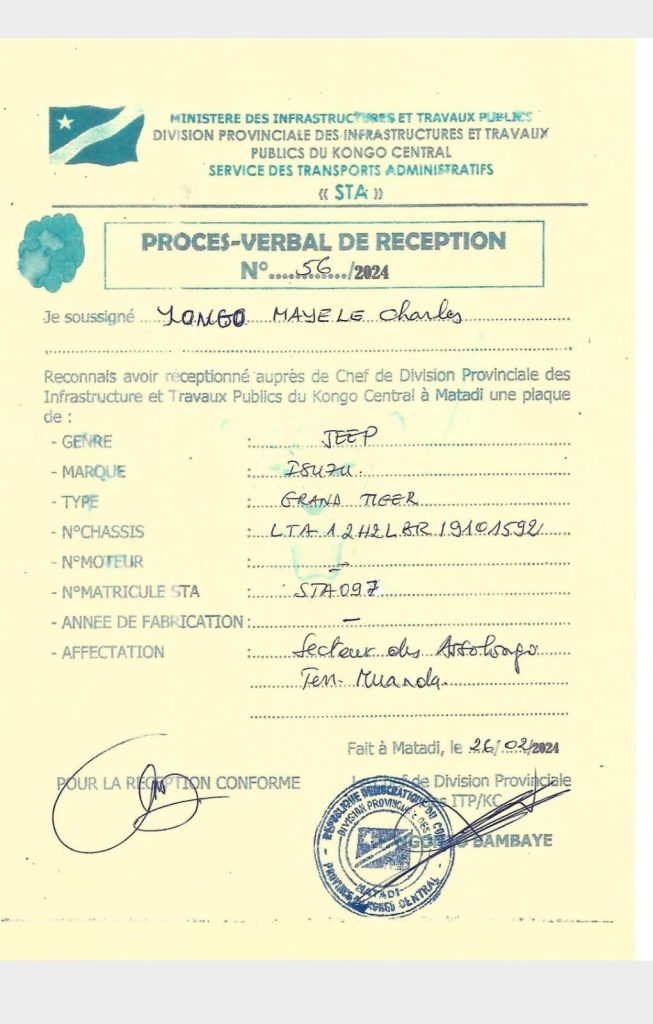 MINISTERE DES INFRASTRUCTURES ET TRAVAUX PUBLICS
DIVISION PROVINCIALE DES INFRASTRUCTURES ET TRAVAUX
PUBLICS DU KONGO CENTRAL
SERVICE DES TRANSPORTS ADMINISTRATIFS
« STA »
PROCES-VERBAL DE RECEPTION
N°.....56...../2024
Je soussigné YONGO MAYELE Charles
Reconnais avoir réceptionné auprès de Chef de Division Provinciale des
Infrastructure et Travaux Publics du Kongo Central à Matadi une plaque
de :
- GENRE : JEEP
- MARQUE : ISUZU
- TYPE : GRAND TIGER
- N°CHASSIS : LTA12H2LBR19101592
- N°MOTEUR : —
- N°MATRICULE STA : STA097
- ANNEE DE FABRICATION : —
- AFFECTATION : Secteur des Assolongo
Terr- Muanda.
Fait à Matadi, le 26/02/2024
POUR LA RECEPTION CONFORME
de Division Provinciale
ITP/KC
BAMBAYE
REPUBLIQUE DEMOCRATIQUE DU CONGO
DIVISION PROVINCIALE DES
MATADI
PROVINCE DU KONGO CENTRAL